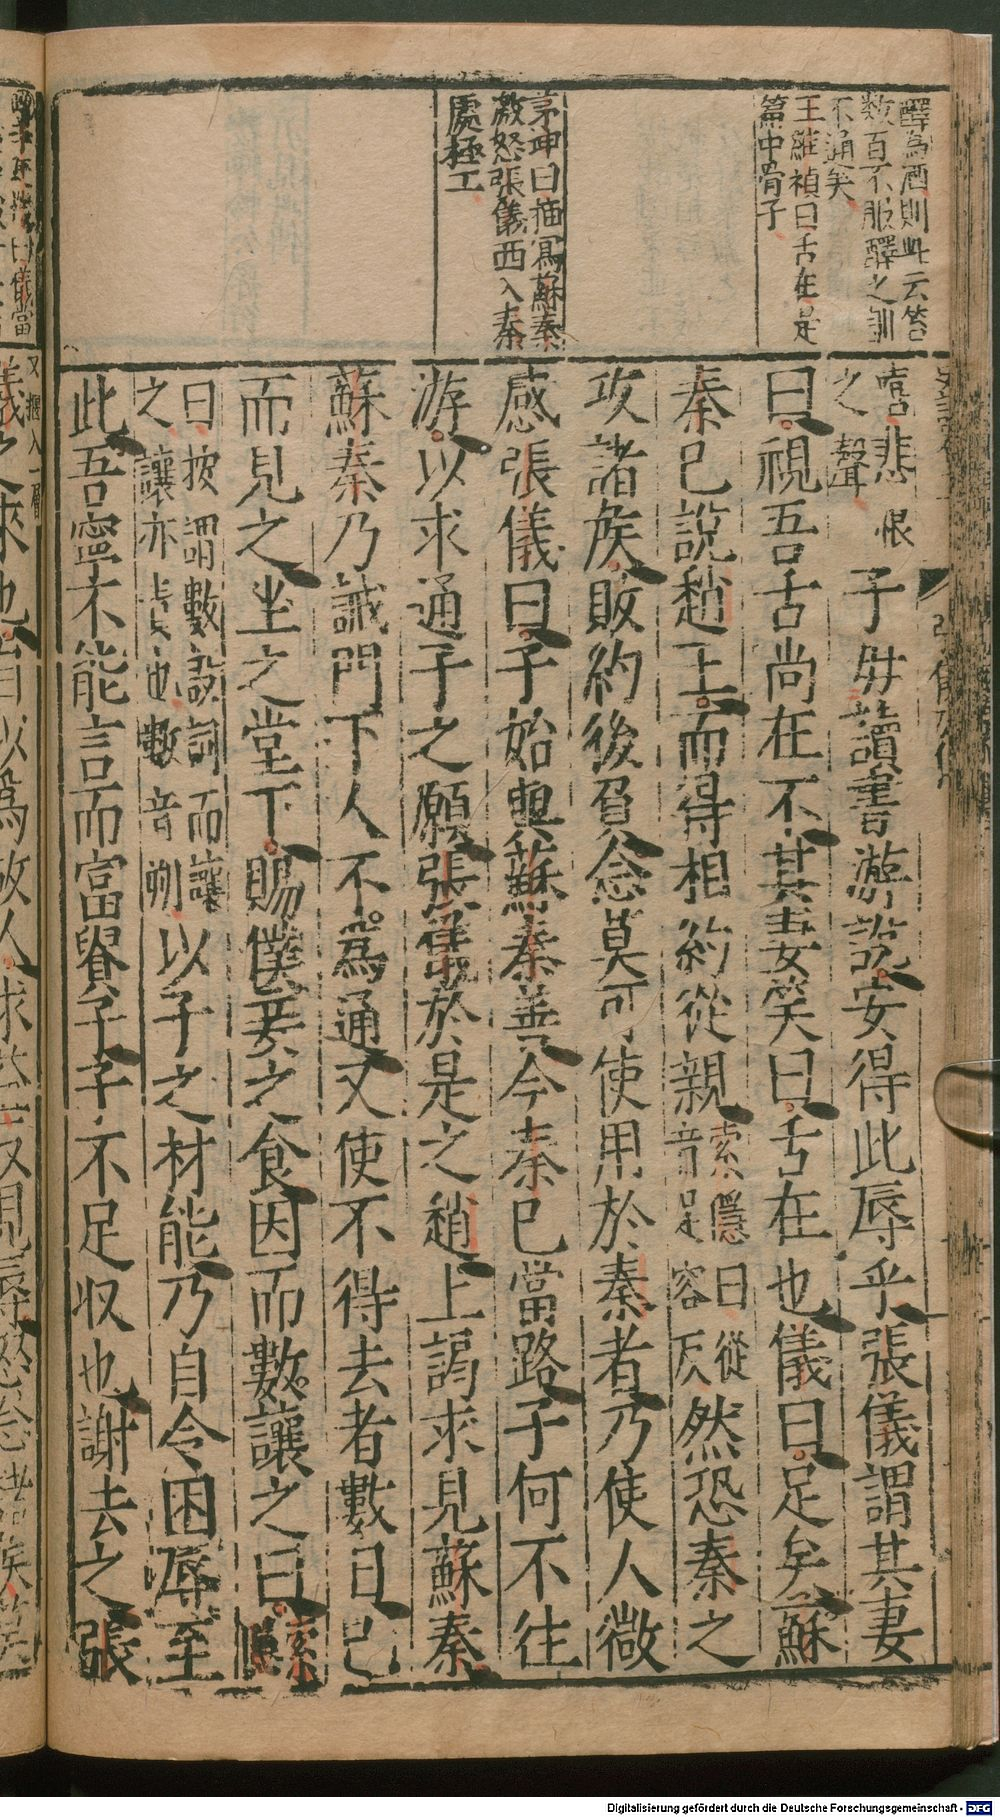 醳為酒則此云笞
数百不服醳之訓
不通矣
王維禎曰舌在是
篇中骨子
茅坤曰描寫蘇秦
激怒張儀西入秦
處極工
嘻悲恨
之聲
子毋讀書游說安得此辱乎張儀謂其妻
曰視吾舌尚在不其妻笑曰舌在也儀曰足矣蘇
秦已說趙王而得相約從親
索隱曰從
音足容反
然恐秦之
攻諸矦敗約後負念莫可使用於秦者乃使人微
感張儀曰子始與蘇秦善今秦已當路子何不往
游以求通子之願張儀於是之趙上謁求見蘇秦
蘇秦乃誡門下人不為通又使不得去者數日已
而見之坐之堂下賜僕妾之食因而數讓之曰
索
隱
曰按謂數設詞而讓
之讓亦責也數音朔
以子之材能乃自令困辱至
此吾寧不能言而富貴子子不足収也謝去之張
Digitalisierung gefördert durch die Deutsche Forschungsgemeinschaft - DFG